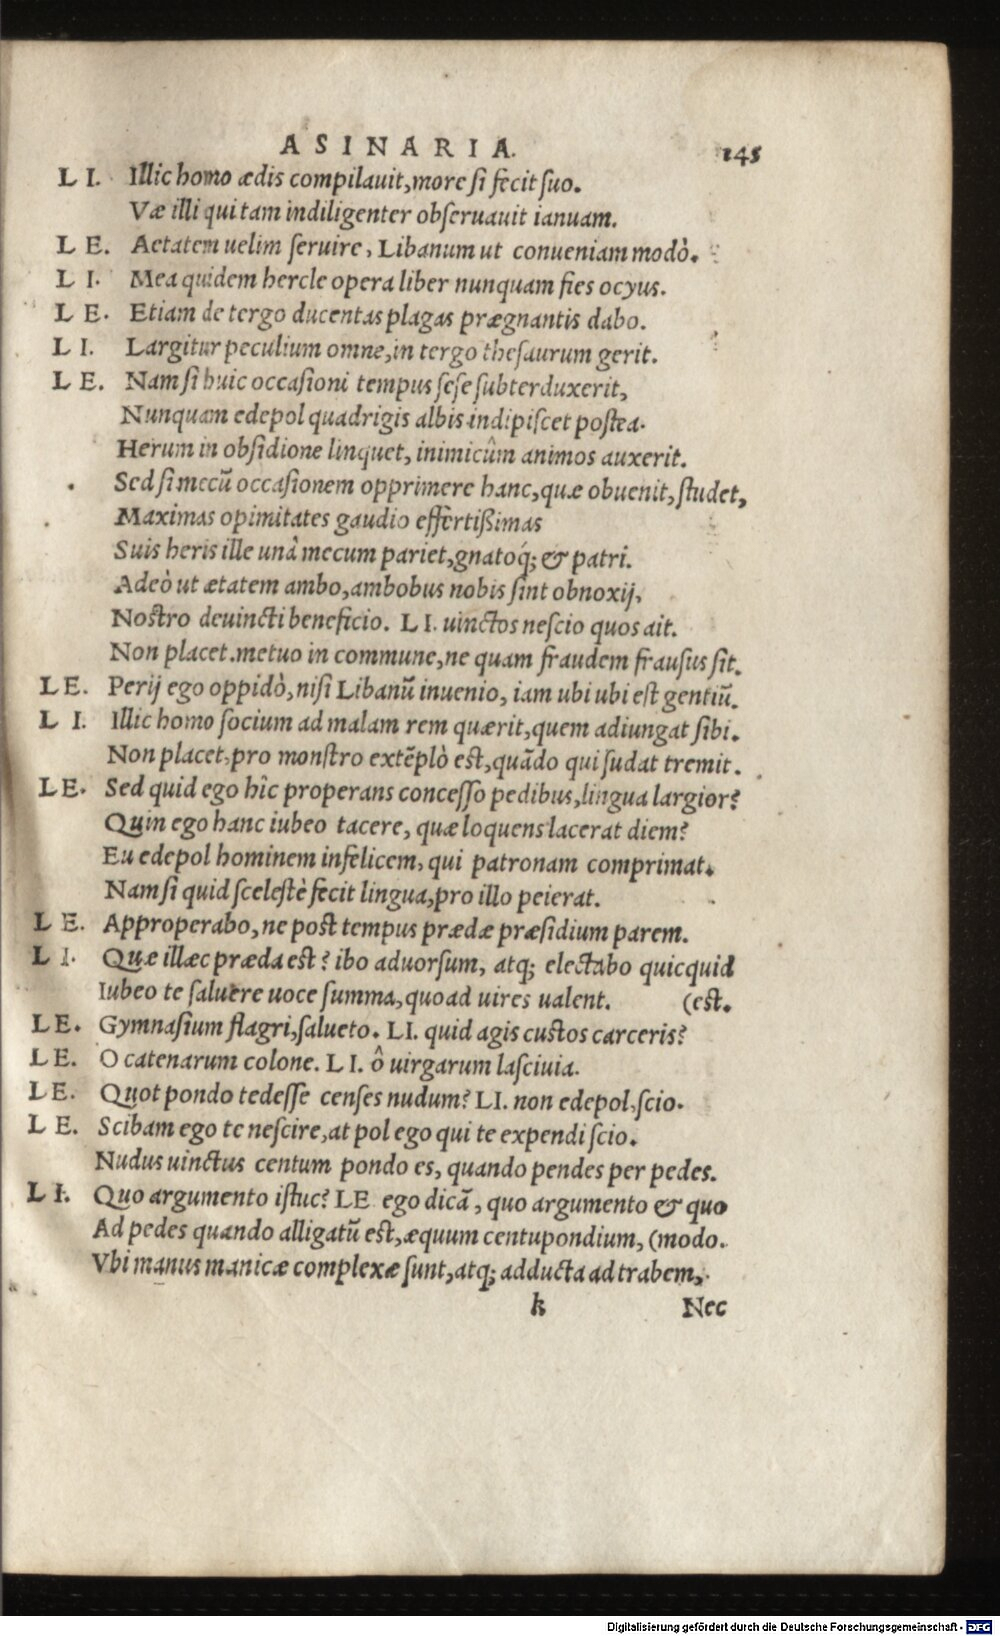 ASINARIA. 145
L I. Illic homo ædis compilauit, more si fecit suo.
Væ illi qui tam indiligenter obseruauit ianuam.
L E. Aetatem uelim seruire, Libanum ut conueniam modò.
L I. Mea quidem hercle opera liber nunquam fies ocyus.
L E. Etiam de tergo ducentas plagas prægnantis dabo.
L I. Largitur peculium omne, in tergo thesaurum gerit.
L E. Nam si huic occasioni tempus sese subterduxerit,
Nunquam edepol quadrigis albis indipiscet postea.
Herum in obsidione linquet, inimicûm animos auxerit.
Sed si mecū occasionem opprimere hanc, quæ obuenit, studet,
Maximas opimitates gaudio effertißimas
Suis heris ille unâ mecum pariet, gnatoq́; & patri.
Adeò ut ætatem ambo, ambobus nobis sint obnoxij,
Nostro deuincti beneficio. L I. uinctos nescio quos ait.
Non placet. metuo in commune, ne quam fraudem frausus sit.
L E. Perij ego oppidò, nisi Libanū inuenio, iam ubi ubi est gentiū.
L I. Illic homo socium ad malam rem quærit, quem adiungat sibi.
Non placet, pro monstro extēplò est, quādo qui sudat tremit.
L E. Sed quid ego hîc properans concesso pedibus, lingua largior?
Quin ego hanc iubeo tacere, quæ loquens lacerat diem?
Eu edepol hominem infelicem, qui patronam comprimat.
Nam si quid scelestè fecit lingua, pro illo peierat.
L E. Approperabo, ne post tempus prædæ præsidium parem.
L I. Quæ illæc præda est? ibo aduorsum, atq; electabo quicquid
Iubeo te saluere uoce summa, quoad uires ualent. (est.
L E. Gymnasium flagri, salueto. L I. quid agis custos carceris?
L E. O catenarum colone. L I. ô uirgarum lasciuia.
L E. Quot pondo tedesse censes nudum? L I. non edepol, scio.
L E. Scibam ego te nescire, at pol ego qui te expendi scio.
Nudus uinctus centum pondo es, quando pendes per pedes.
L I. Quo argumento istuc? L E. ego dicā, quo argumento & quo
Ad pedes quando alligatū est, æquum centupondium, (modo.
Vbi manus manicæ complexæ sunt, atq; adducta ad trabem,
k Nec
Digitalisierung gefördert durch die Deutsche Forschungsgemeinschaft - DFG